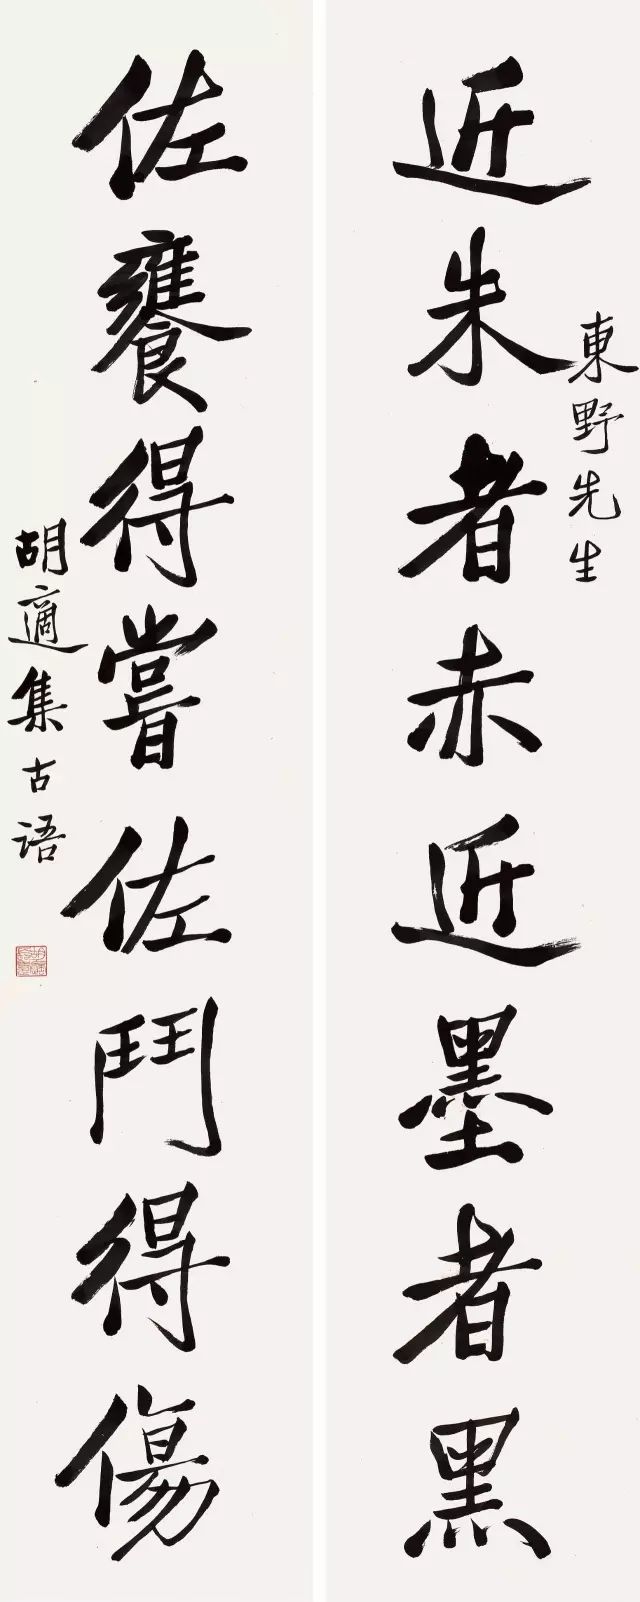 近朱者赤近墨者黑
東野先生
佐饔得嘗佐鬥得傷
胡適集古语